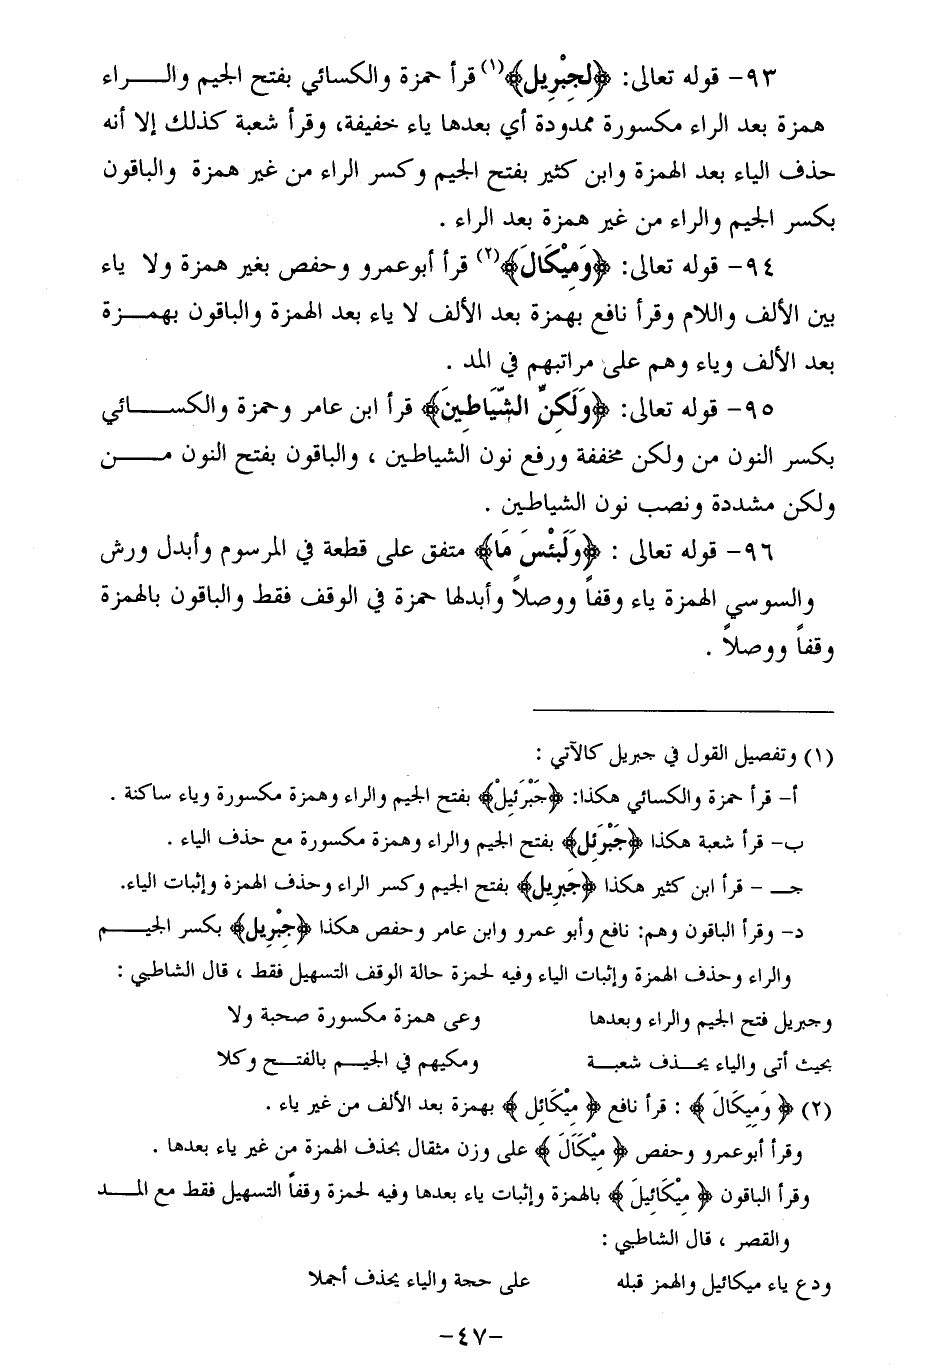 ٩٣- قوله تعالى: ﴿لِجِبْرِيلَ﴾(١) قرأ حمزة والكسائي بفتح الجيم والـــراء
همزة بعد الراء مكسورة ممدودة أي بعدها ياء خفيفة، وقرأ شعبة كذلك إلا أنه
حذف الياء بعد الهمزة وابن كثير بفتح الجيم وكسر الراء من غير همزة والباقون
بكسر الجيم والراء من غير همزة بعد الراء .
٩٤- قوله تعالى: ﴿وَمِيْكَالَ﴾(٢) قرأ أبوعمرو وحفص بغير همزة ولا ياء
بين الألف واللام وقرأ نافع بهمزة بعد الألف لا ياء بعد الهمزة والباقون بهمـــزة
بعد الألف وياء وهم على مراتبهم في المد .
٩٥- قوله تعالى: ﴿وَلَكِنَّ الشَّيَاطِينَ﴾ قرأ ابن عامر وحمزة والكســـائي
بكسر النون من ولكن مخففة ورفع نون الشياطين ، والباقون بفتح النون مـــن
ولكن مشددة ونصب نون الشياطين .
٩٦- قوله تعالى : ﴿وَلَبِئْسَ مَا﴾ متفق على قطعة في المرسوم وأبدل ورش
والسوسي الهمزة ياء وقفاً ووصلاً وأبدلها حمزة في الوقف فقط والباقون بالهمزة
وقفاً ووصلاً .
(١) وتفصيل القول في جبريل كالآتي :
أ- قرأ حمزة والكسائي هكذا: ﴿جَبْرَئِيلْ﴾ بفتح الجيم والراء وهمزة مكسورة وياء ساكنة .
ب- قرأ شعبة هكذا ﴿جَبْرَئِل﴾ بفتح الجيم والراء وهمزة مكسورة مع حذف الياء .
جـــ - قرأ ابن كثير هكذا ﴿جَبرِيل﴾ بفتح الجيم وكسر الراء وحذف الهمزة وإثبات الياء.
د- وقرأ الباقون وهم: نافع وأبو عمرو وابن عامر وحفص هكذا ﴿جِبْرِيل﴾ بكسر الجيـــم
والراء وحذف الهمزة وإثبات الياء وفيه لحمزة حالة الوقف التسهيل فقط ، قال الشاطبي :
وجبريل فتح الجيم والراء وبعدها وعى همزة مكسورة صحبة ولا
بحيث أتى والياء يحـــذف شعبـــة ومكيهم في الجيـــم بالفتـــح وكلا
(٢) ﴿ وَمِيكَالَ ﴾ : قرأ نافع ﴿ مِيْكَائِل ﴾ بهمزة بعد الألف من غير ياء .
وقرأ أبوعمرو وحفص ﴿ مِيْكَالَ ﴾ على وزن مثقال بحذف الهمزة من غير ياء بعدها .
وقرأ الباقون ﴿ مِيْكَائِيلَ ﴾ بالهمزة وإثبات ياء بعدها وفيه لحمزة وقفاً التسهيل فقط مع المـــد
والقصر ، قال الشاطبي :
ودع ياء ميكائيل والهمز قبله على حجة والياء يحذف أجملا
-٤٧-